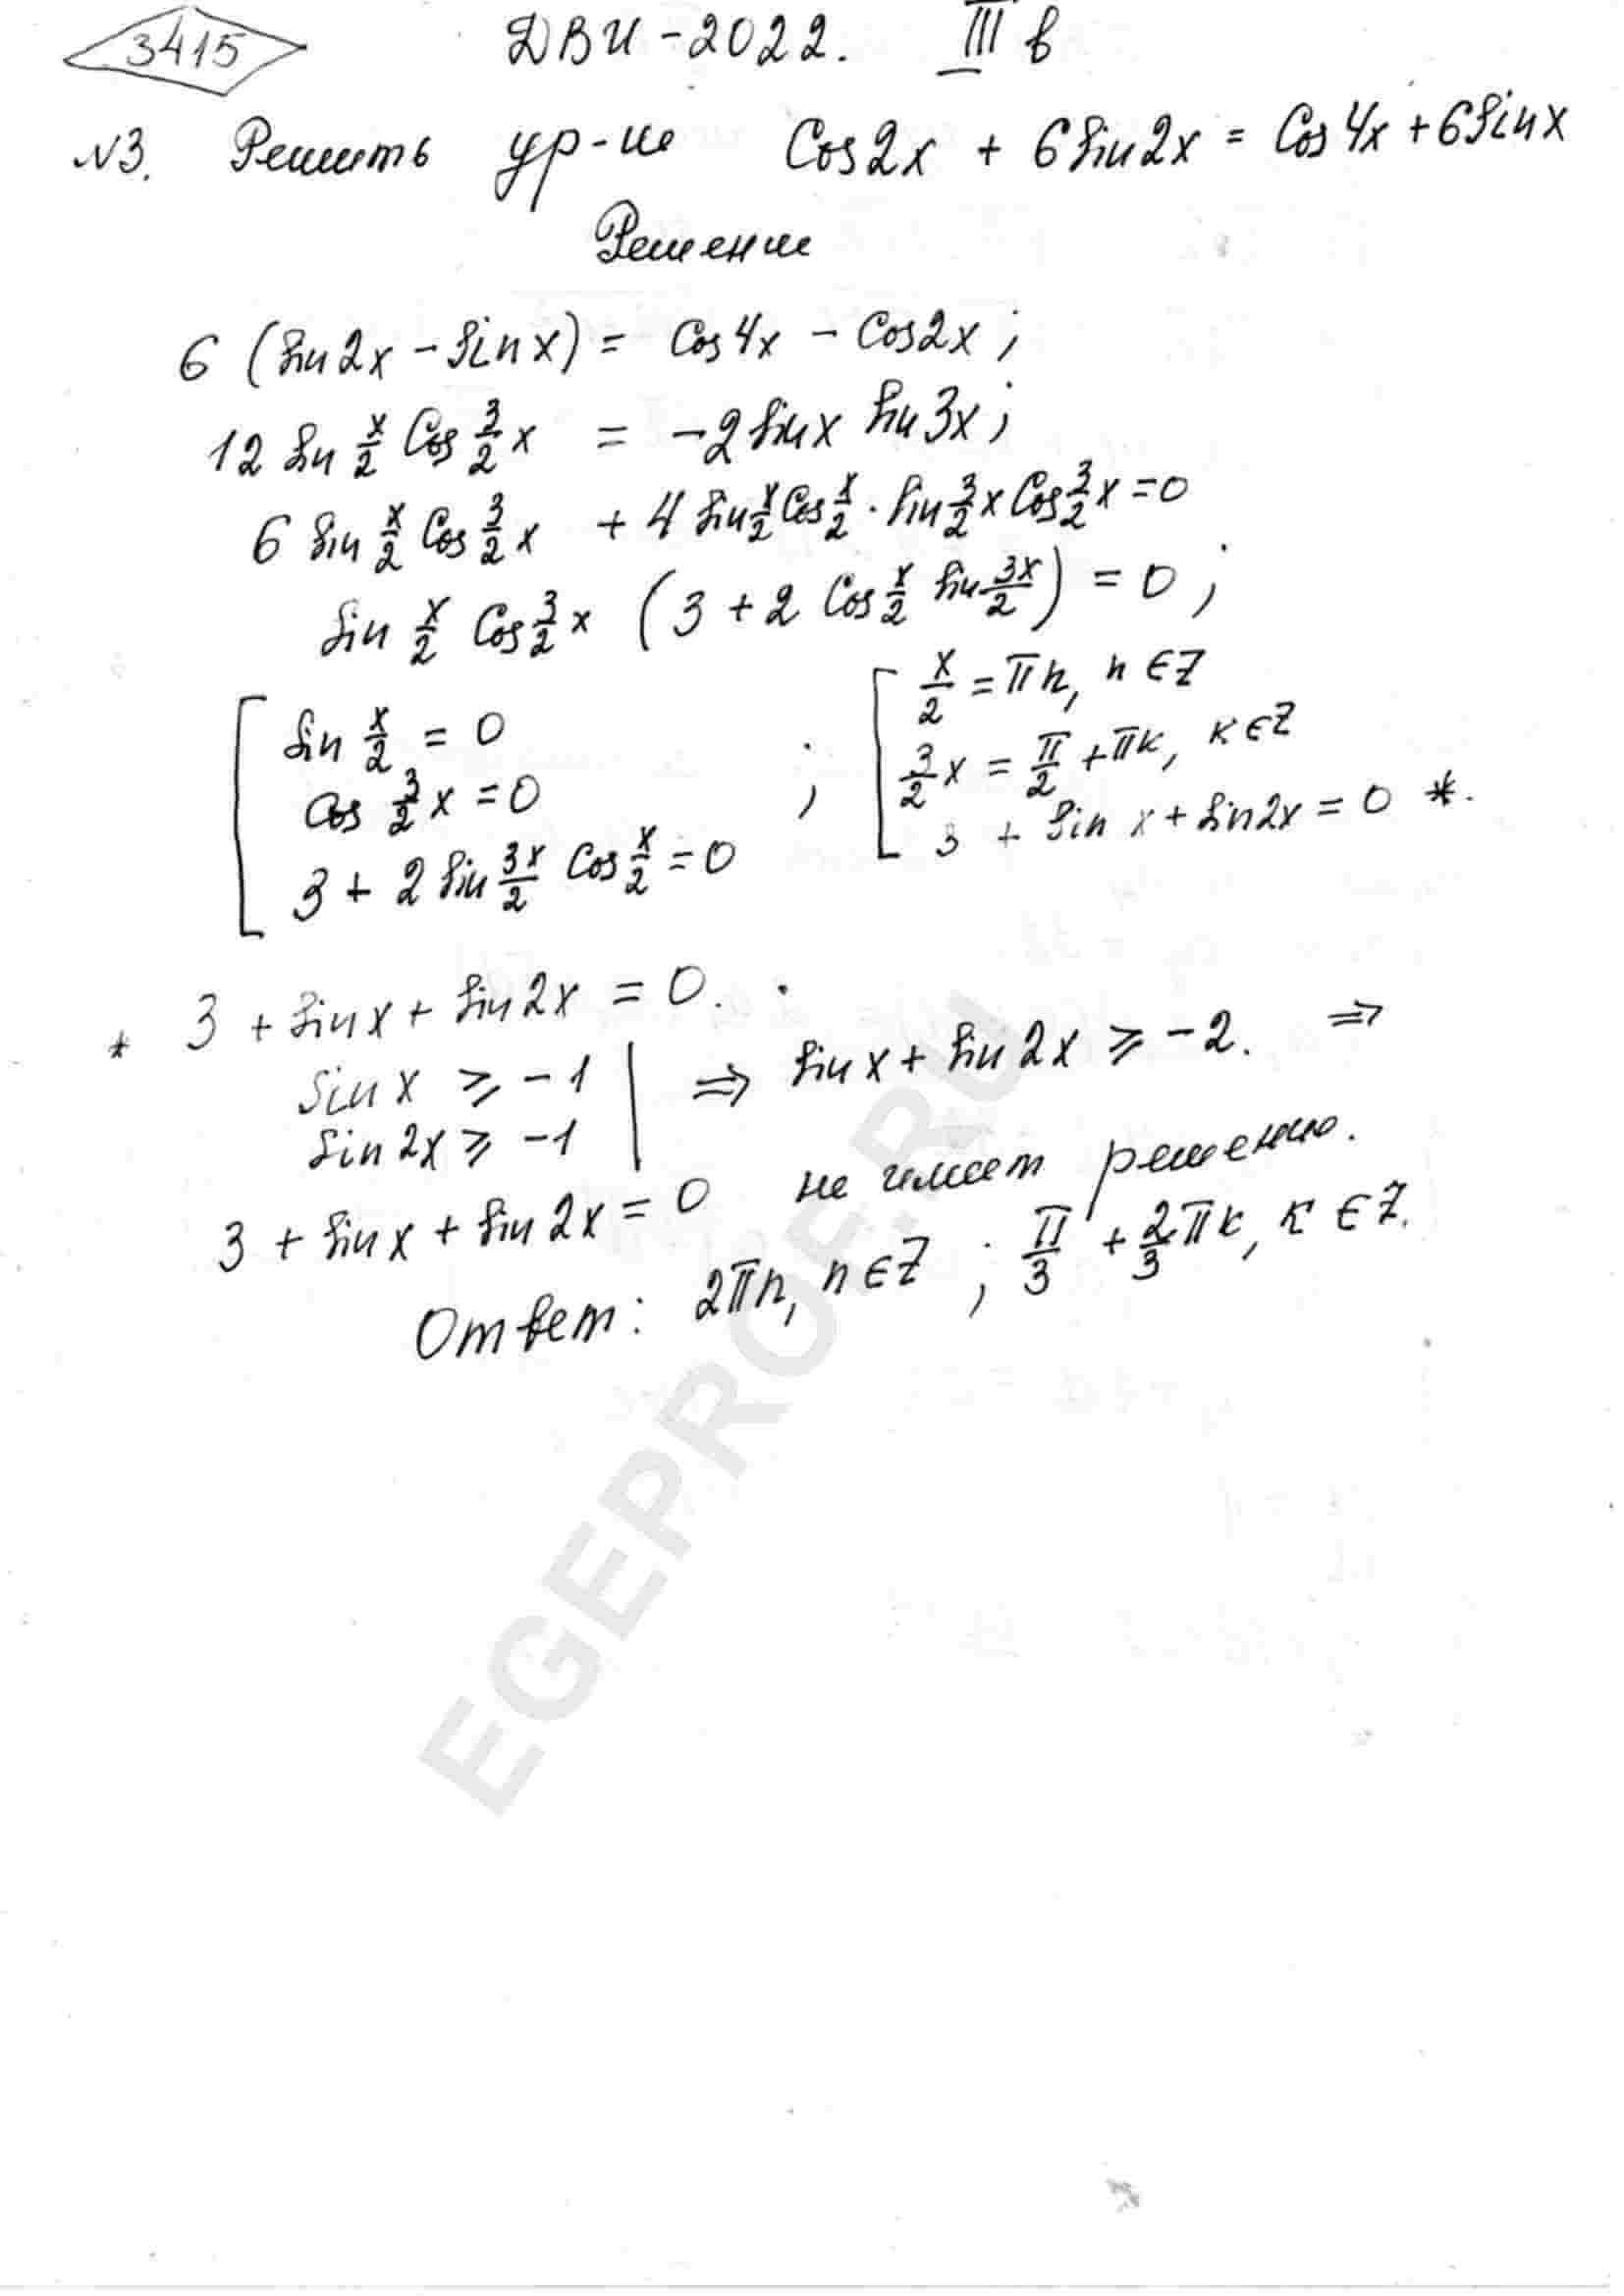 3415
ДВИ-2022. III в
№3. Решить ур-ие Cos2x + 6Sin2x = Cos4x + 6Sinx
Решение
6 (Sin2x - Sinx) = Cos4x - Cos2x;
12 Sin x/2 Cos 3/2 x = -2Sinx Sin3x;
6 Sin x/2 Cos 3/2 x + 4 Sin x/2 Cos x/2 · Sin 3/2 x Cos 3/2 x = 0
Sin x/2 Cos 3/2 x (3 + 2 Cos x/2 Sin 3x/2) = 0;
[ Sin x/2 = 0
Cos 3/2 x = 0
3 + 2 Sin 3x/2 Cos x/2 = 0
; [ x/2 = πn, n ∈ Z
3/2 x = π/2 + πk, k ∈ Z
3 + Sin x + Sin2x = 0 *.
* 3 + Sinx + Sin2x = 0.
Sinx ≥ -1
Sin2x ≥ -1 | ⇒ Sinx + Sin2x ≥ -2. ⇒
3 + Sinx + Sin2x = 0 не имеет решению.
Ответ: 2πn, n ∈ Z; π/3 + 2/3 πk, k ∈ Z.
EGEPROF.RU